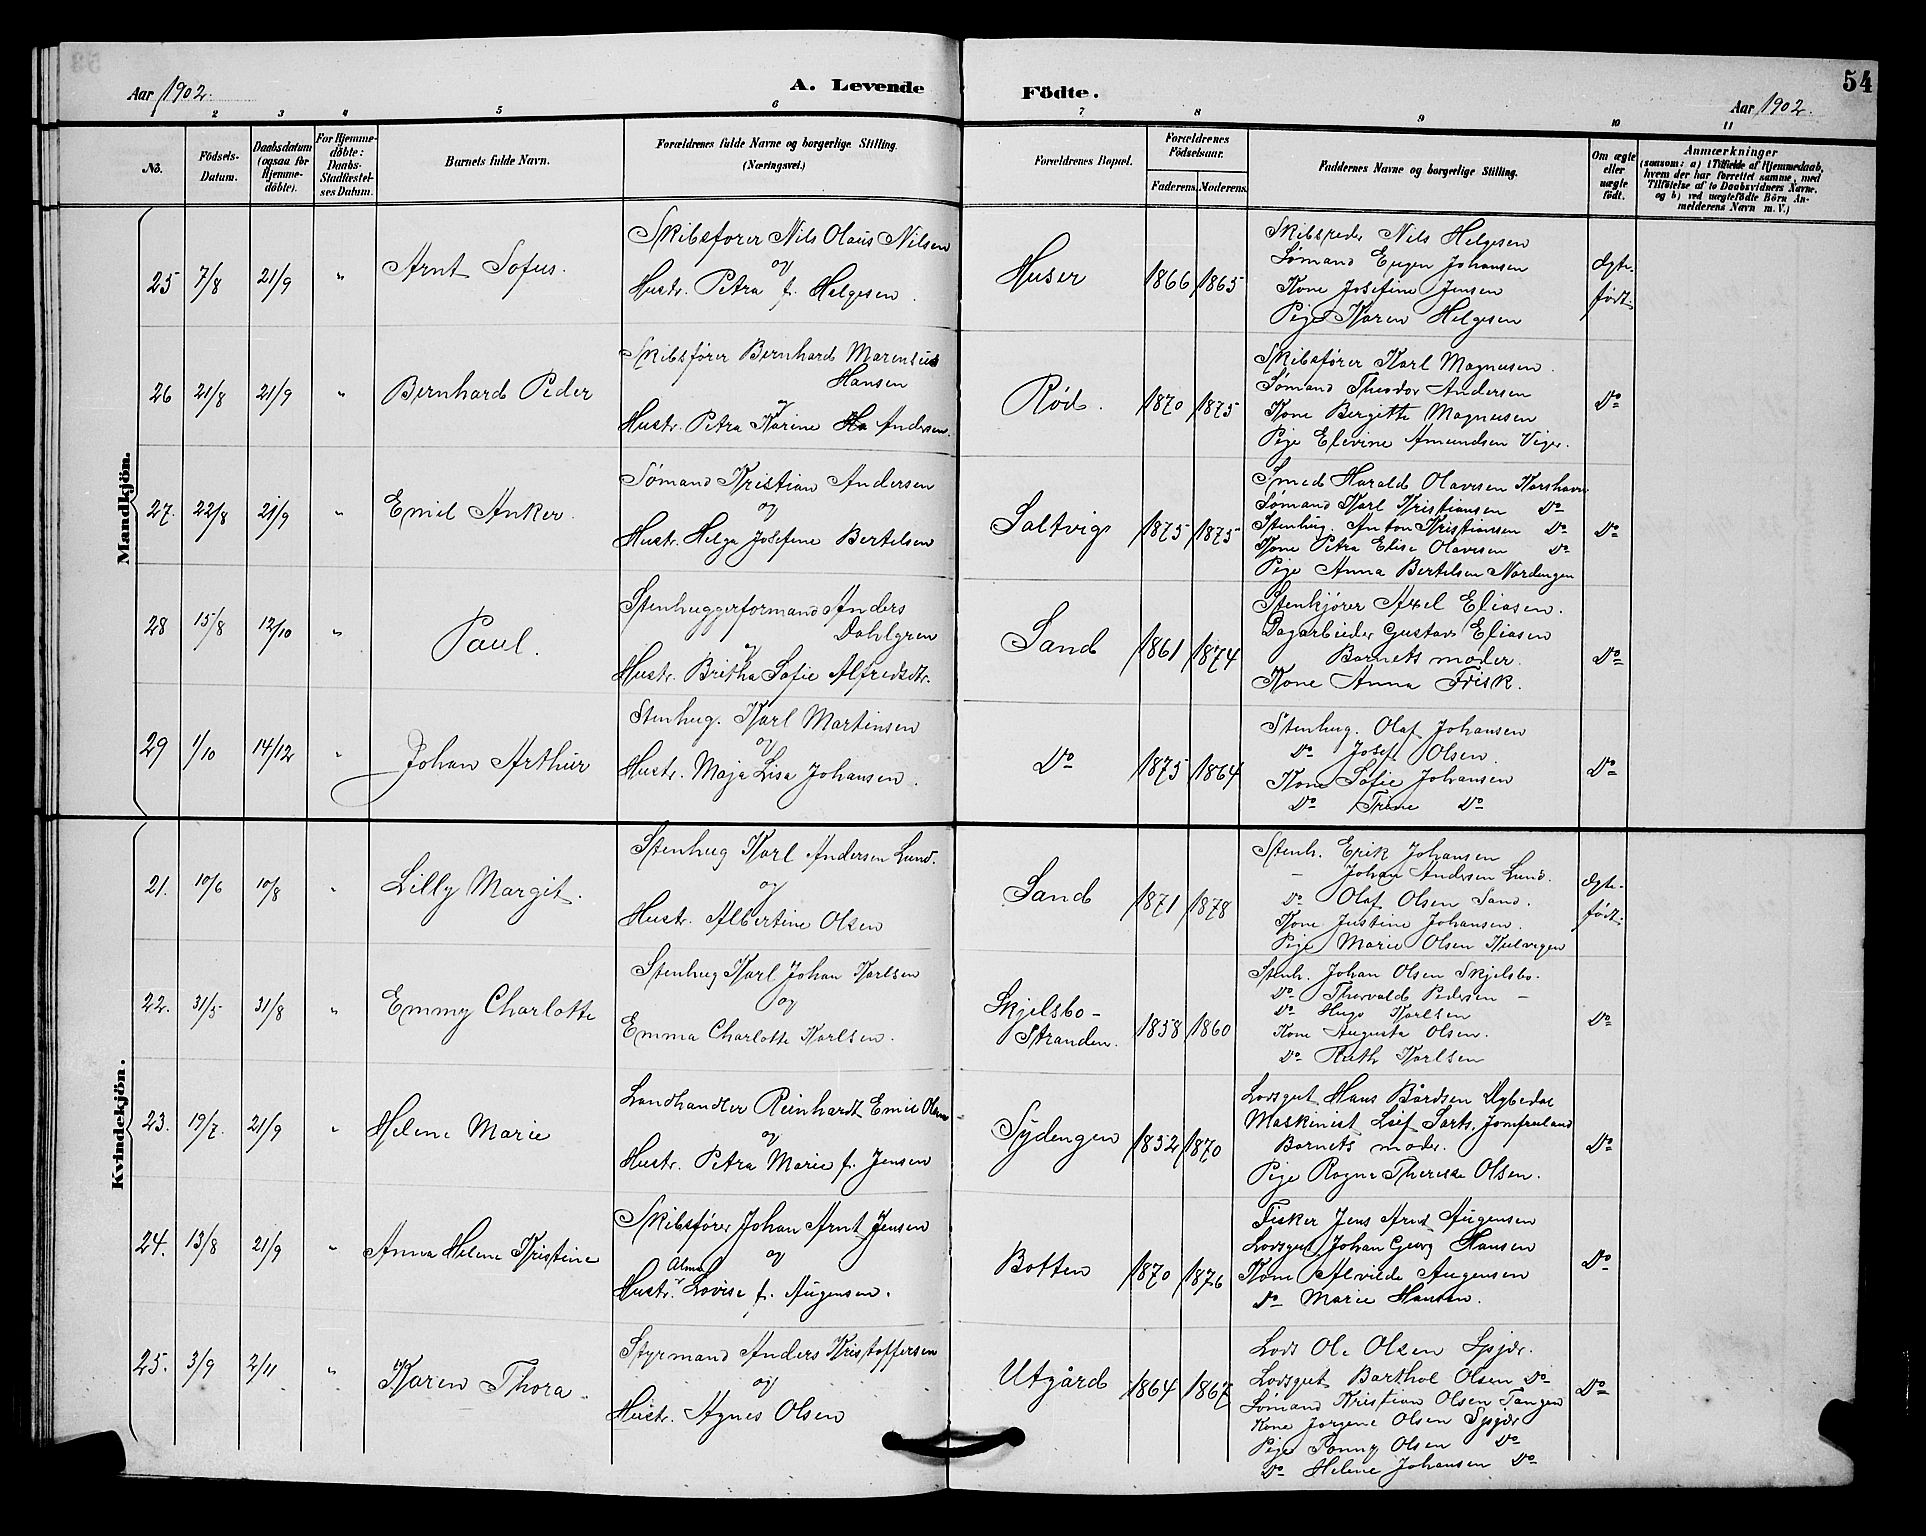 54
Aar 1902.
A. Levende Födte.
Aar 1902.
1 2 3 4 5 6 7 8 9 10 11
No.
Födsels-Datum.
Daabsdatum (ogsaa for Hjemme-döbte).
For Hjemme-döbte: Daabs-Stadfæstel-ses Datum.
Barnets fulde Navn.
Forældrenes fulde Navne og borgerlige Stilling. (Næringsvei.)
Forældrenes Bopæl.
Forældrenes Födselsaar.
Faderens. Moderens.
Faddernes Navne og borgerlige Stilling.
Om ægte eller uægte födt.
Anmærkninger
(saasom: a) i Tilfælde af Hjemmedaab, hvem der har forrettet samme, med Tilföielse af to Daabsvidners Navne. og b) ved uægtefödte Börn An-melderens Navn m. V.)
Mandkjön.
25 7/8 21/9 " Arnt Sofus.
Skibsfører Nils Olaus Nilsen
og
Hustr. Petra f. Helgesen.
Huser 1866 1865
Skibsreder Nils Helgesen
Sømand Eugen Johansen
Kone Josefine Jensen
Pige Karen Helgesen
Ægte-
født.
26 21/8 21/9 " Bernhard Peder
Skibsfører Bernhard Marensius
Hansen
og
Hustr. Petra Karine Andersen.
Rød. 1870 1875
Skibsfører Karl Magnusen.
Sømand Theodor Andersen
Kone Bergitte Magnusen
Pige Elevine Amundsen Viger.
Do
27. 22/8 21/9 " Emil Anker.
Sømand Kristian Andersen
og
Hustr. Helga Josefine Bertelsen
Saltvig 1875 1875
Smed Harald Olavesen Korshavn
Sømand Karl Kristiansen Do
Stenhug. Anton Kristiansen Do
Kone Petra Elise Olavesen Do
Pige Anna Bertelsen Nordengen
Do
28 15/8 12/10 " Paul.
Stenhuggerformand Anders
Dahlgren
og
Hustr. Britha Sofie Alfredsdtr.
Sand 1861 1874
Stenkjører Axel Eliasen.
Dagarbeider Gustav Eliasen
Barnets moder.
Kone Anna Frisk.
Do
29 1/10 14/12 " Johan Arthur
Stenhug. Karl Martinsen
og
Hustr. Maja Lisa Johansen.
Do 1875 1864
Stenhug. Olaf Johansen
Do Josef Olsen.
Kone Sofie Johansen
Do Trine Do
Do
Kvindekjön.
21. 10/6 10/8 " Lilly Margit.
Stenhug Karl Andersen Lund.
og
Hustr. Albertine Olsen
Sand 1871 1878
Stenh. Erik Johansen
- Johan Andersen Lund.
Do Olaf Olsen Sand.
Kone Justine Johansen.
Pige Marie Olsen Kulvigen
Ægte-
født.
22. 31/5 31/8 " Emmy Charlotte
Stenhug Karl Johan Karlsen
og
Emma Charlotte Karlsen.
Skjelsbo-
Stranden. 1858 1860
Stenh. Johan Olsen Skjelsbo.
Do Thorvald Pedersen -
Do Hugo Karlsen
Kone Augusta Olsen.
Do Ruth Karlsen
Do
23. 19/7. 21/9 " Helene Marie
Landhandler Reinhardt Emil Olsen
og
Hustr. Petra Marie f. Jensen
Sydengen 1852 1870
Lodsgut Hans Bårdsen Dybedal
Maskinist Leif Sarts. Jomfruland
Barnets moder.
Pige Ragna Therese Olsen.
Do
24. 13/8 21/9 " Anna Helene Kristine
Skibsfører Johan Arnt Jensen
og
Alma
Hustr. Lovise f. Augensen.
Botten 1870 1876
Fisker Jens Arnt Augensen
Lodsgut Johan Georg Hansen
Kone Alvilde Augensen
Do Marie Hansen.
Do
25. 3/9 2/11 " Karen Thora.
Styrmand Anders Kristoffersen
og
Hustr. Agnes Olsen
Utgård 1864 1867
Lods Ole Olsen Spjær.
Lodsgut Barthol Olsen Do
Sømand Kristian Olsen Tangen
Kone Jørgine Olsen Spjær
Pige Fanny Olsen Do
Do Helene Johansen Do
Do